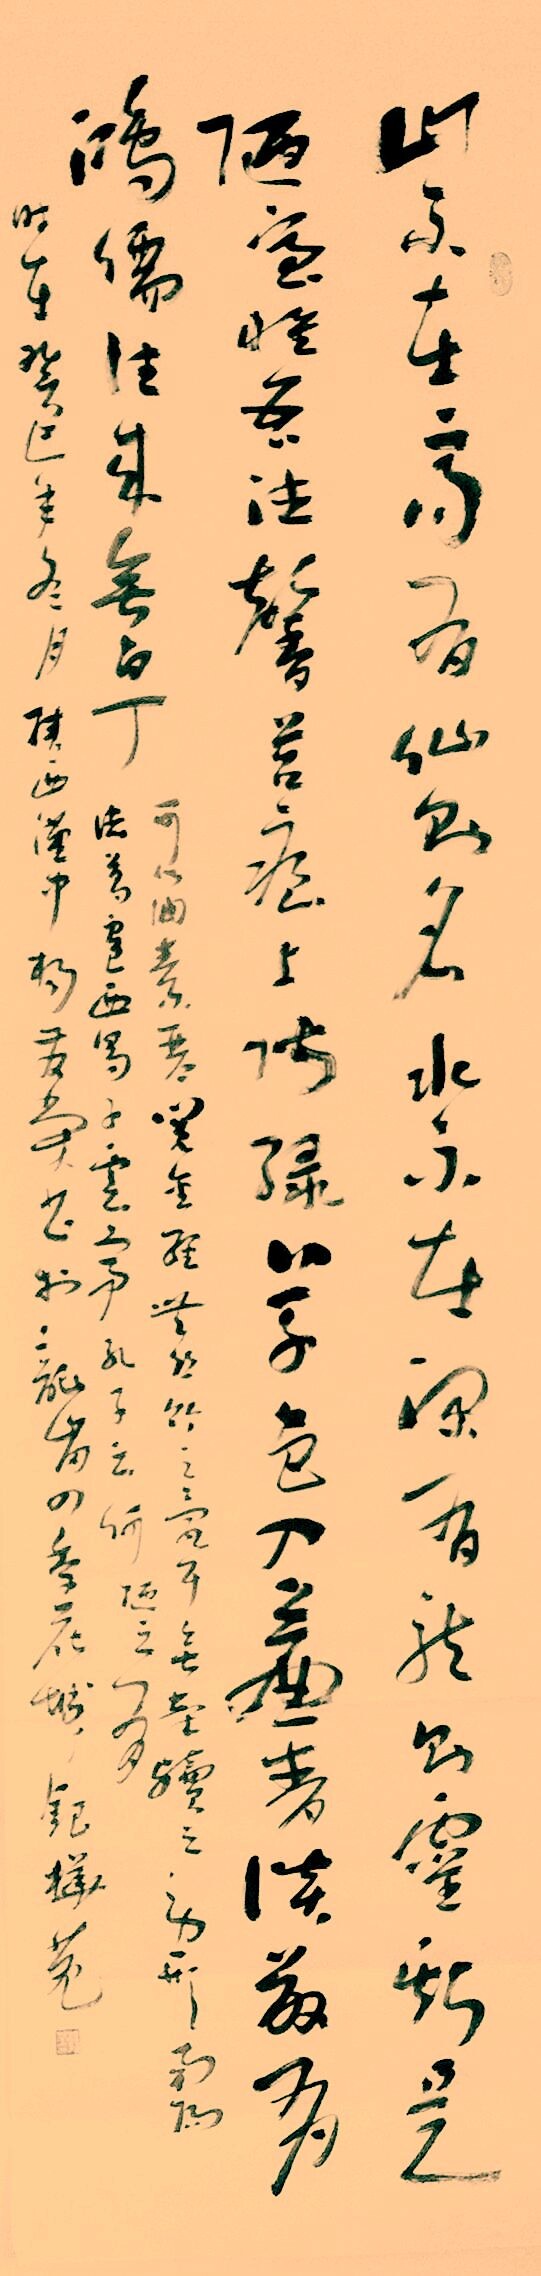 山不在高有仙則名水不在深有龍則靈斯是
陋室惟吾德馨苔痕上階綠草色入簾青談笑有
鴻儒往來無白丁
可以調素琴閱金經無絲竹之亂耳無案牘之勞形南陽
諸葛廬西蜀子雲亭孔子云何陋之有
時在癸巳年冬月陝西漢中楊發榮書於龍崗四季花城銀樺苑